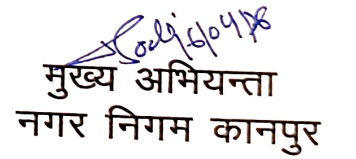 6/04/26
मुख्य अभियन्ता
नगर निगम कानपुर